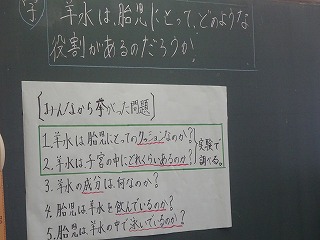 学
羊水は、胎児にとって、どのような
役割があるのだろうか?
[みんなから挙がった問題]
1.羊水は胎児にとってのクッションなのか?
2.羊水は、子宮の中にどれくらいあるのか?
実験で
調べる。
3.羊水の成分は、何なのか?
4.胎児は羊水を飲んでいるのか?
5.胎児は、羊水の中で泳いでいるのか?